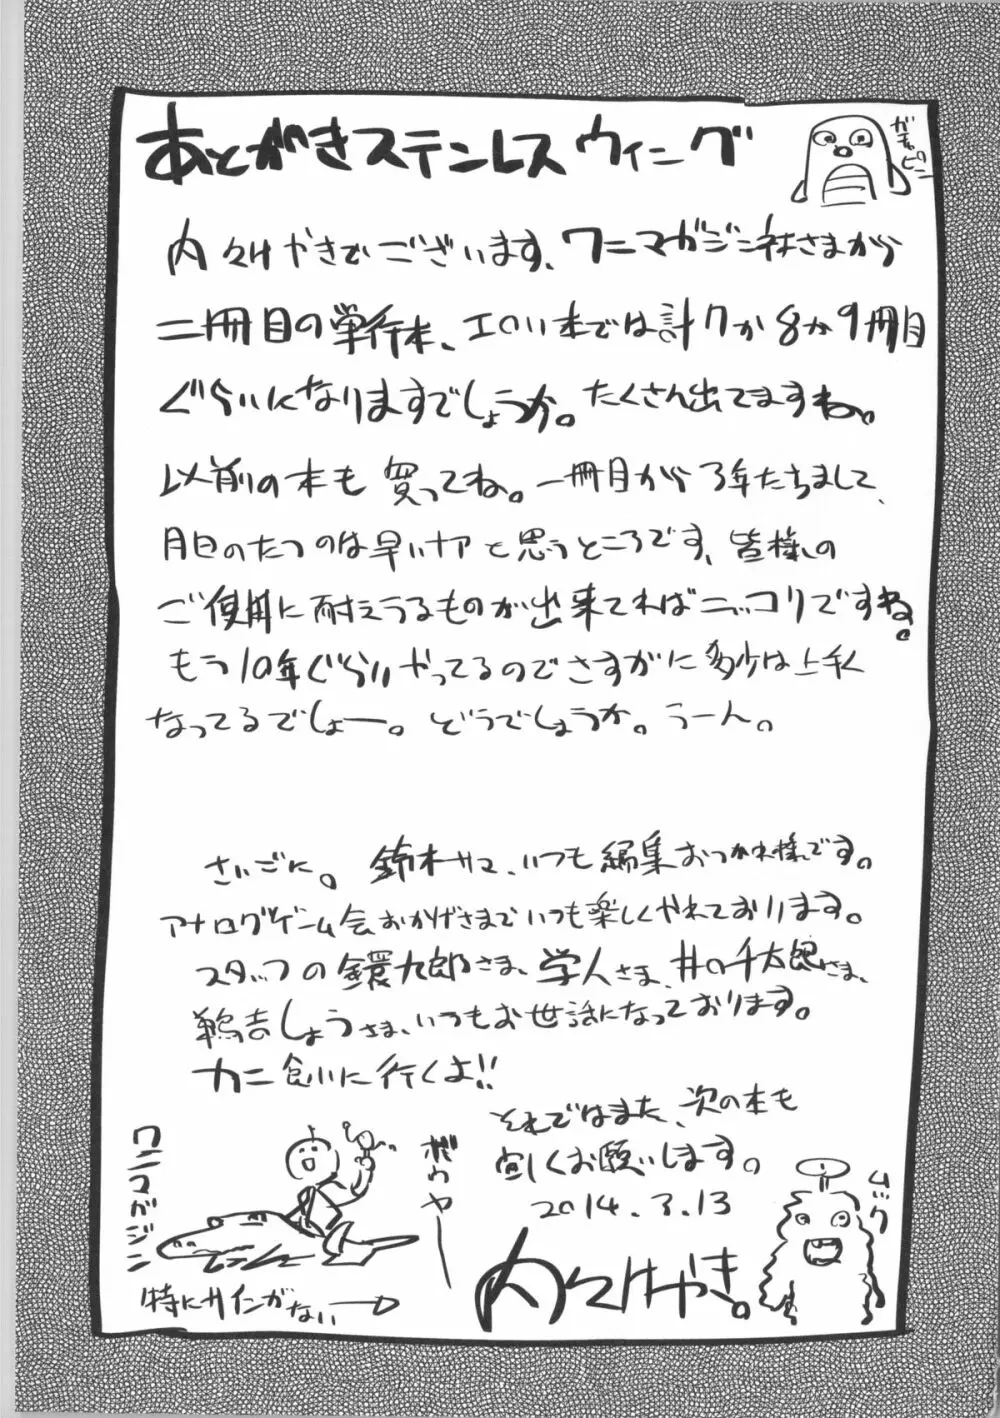 あとがきステンレスウィニーグ
ガチャピン
内々けやきでございます、ワニマガジン社さまから
二冊目の単行本、エロい本では計7か8か9冊目
ぐらいになりますでしょうか。たくさん出てますね。
以前の本も買ってね。一冊目から3年たちまして、
月日のたつのは早いナアと思うところです、皆様の
ご使用に耐えうるものが出来てればニッコリですね。
もう10年ぐらいやってるのでさすがに多少は上手く
なってるでしょー。どうでしょうか。うーん。
さいごに。鈴木サマ、いつも編集おつかれ様です。
アナログゲーム会おかげさまでいつも楽しくやれております。
スタッフの鐶九郎さま、学人さま、井の千太郎さま、
鵜吉しょうさま、いつもお世話になっております。
カニ食いに行くよ!!
それではまた、次の本も
宜しくお願いします。
2014.3.13
内々けやき。
ワニマガジン
ボウヤー
特にサインがない
ムック